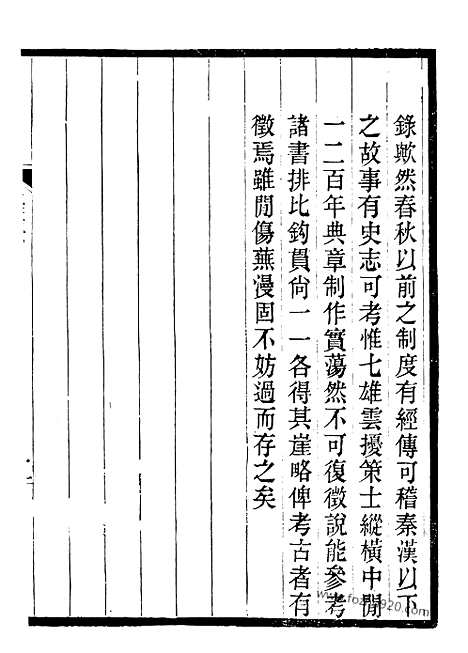 錄歟然春秋以前之制度有經傳可稽秦漢以下
之故事有史志可考惟七雄雲擾策士縱橫中閒
一二百年典章制作實蕩然不可復徵說能參考
諸書排比鈎貫尙一一各得其崖略俾考古者有
徵焉雖閒傷蕪漫固不妨過而存之矣